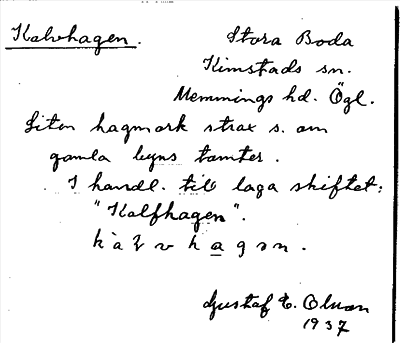 Kalvhagen.
Stora Boda
Kimstads sn.
Memmings hd. Ögl.
Liten hagmark strax s. om
gamla byns tomter.
I handl. till laga skiftet:
"Kalfhagen".
Gustaf E. Olson
1937